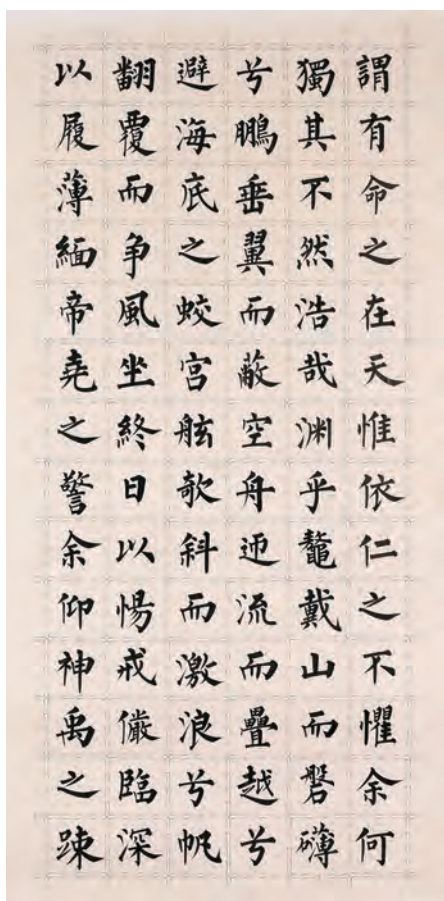 謂有命之在天惟依仁之不懼余何
獨其不然浩哉渊乎鼇戴山而磐礴
兮鵬垂翼而蔽空舟迊流而疊越兮
避海底之蛟宮舷歌斜而激浪兮帆
翻覆而争風坐終日以惕戒儼臨深
以履薄緬帝堯之警余仰神禹之踈